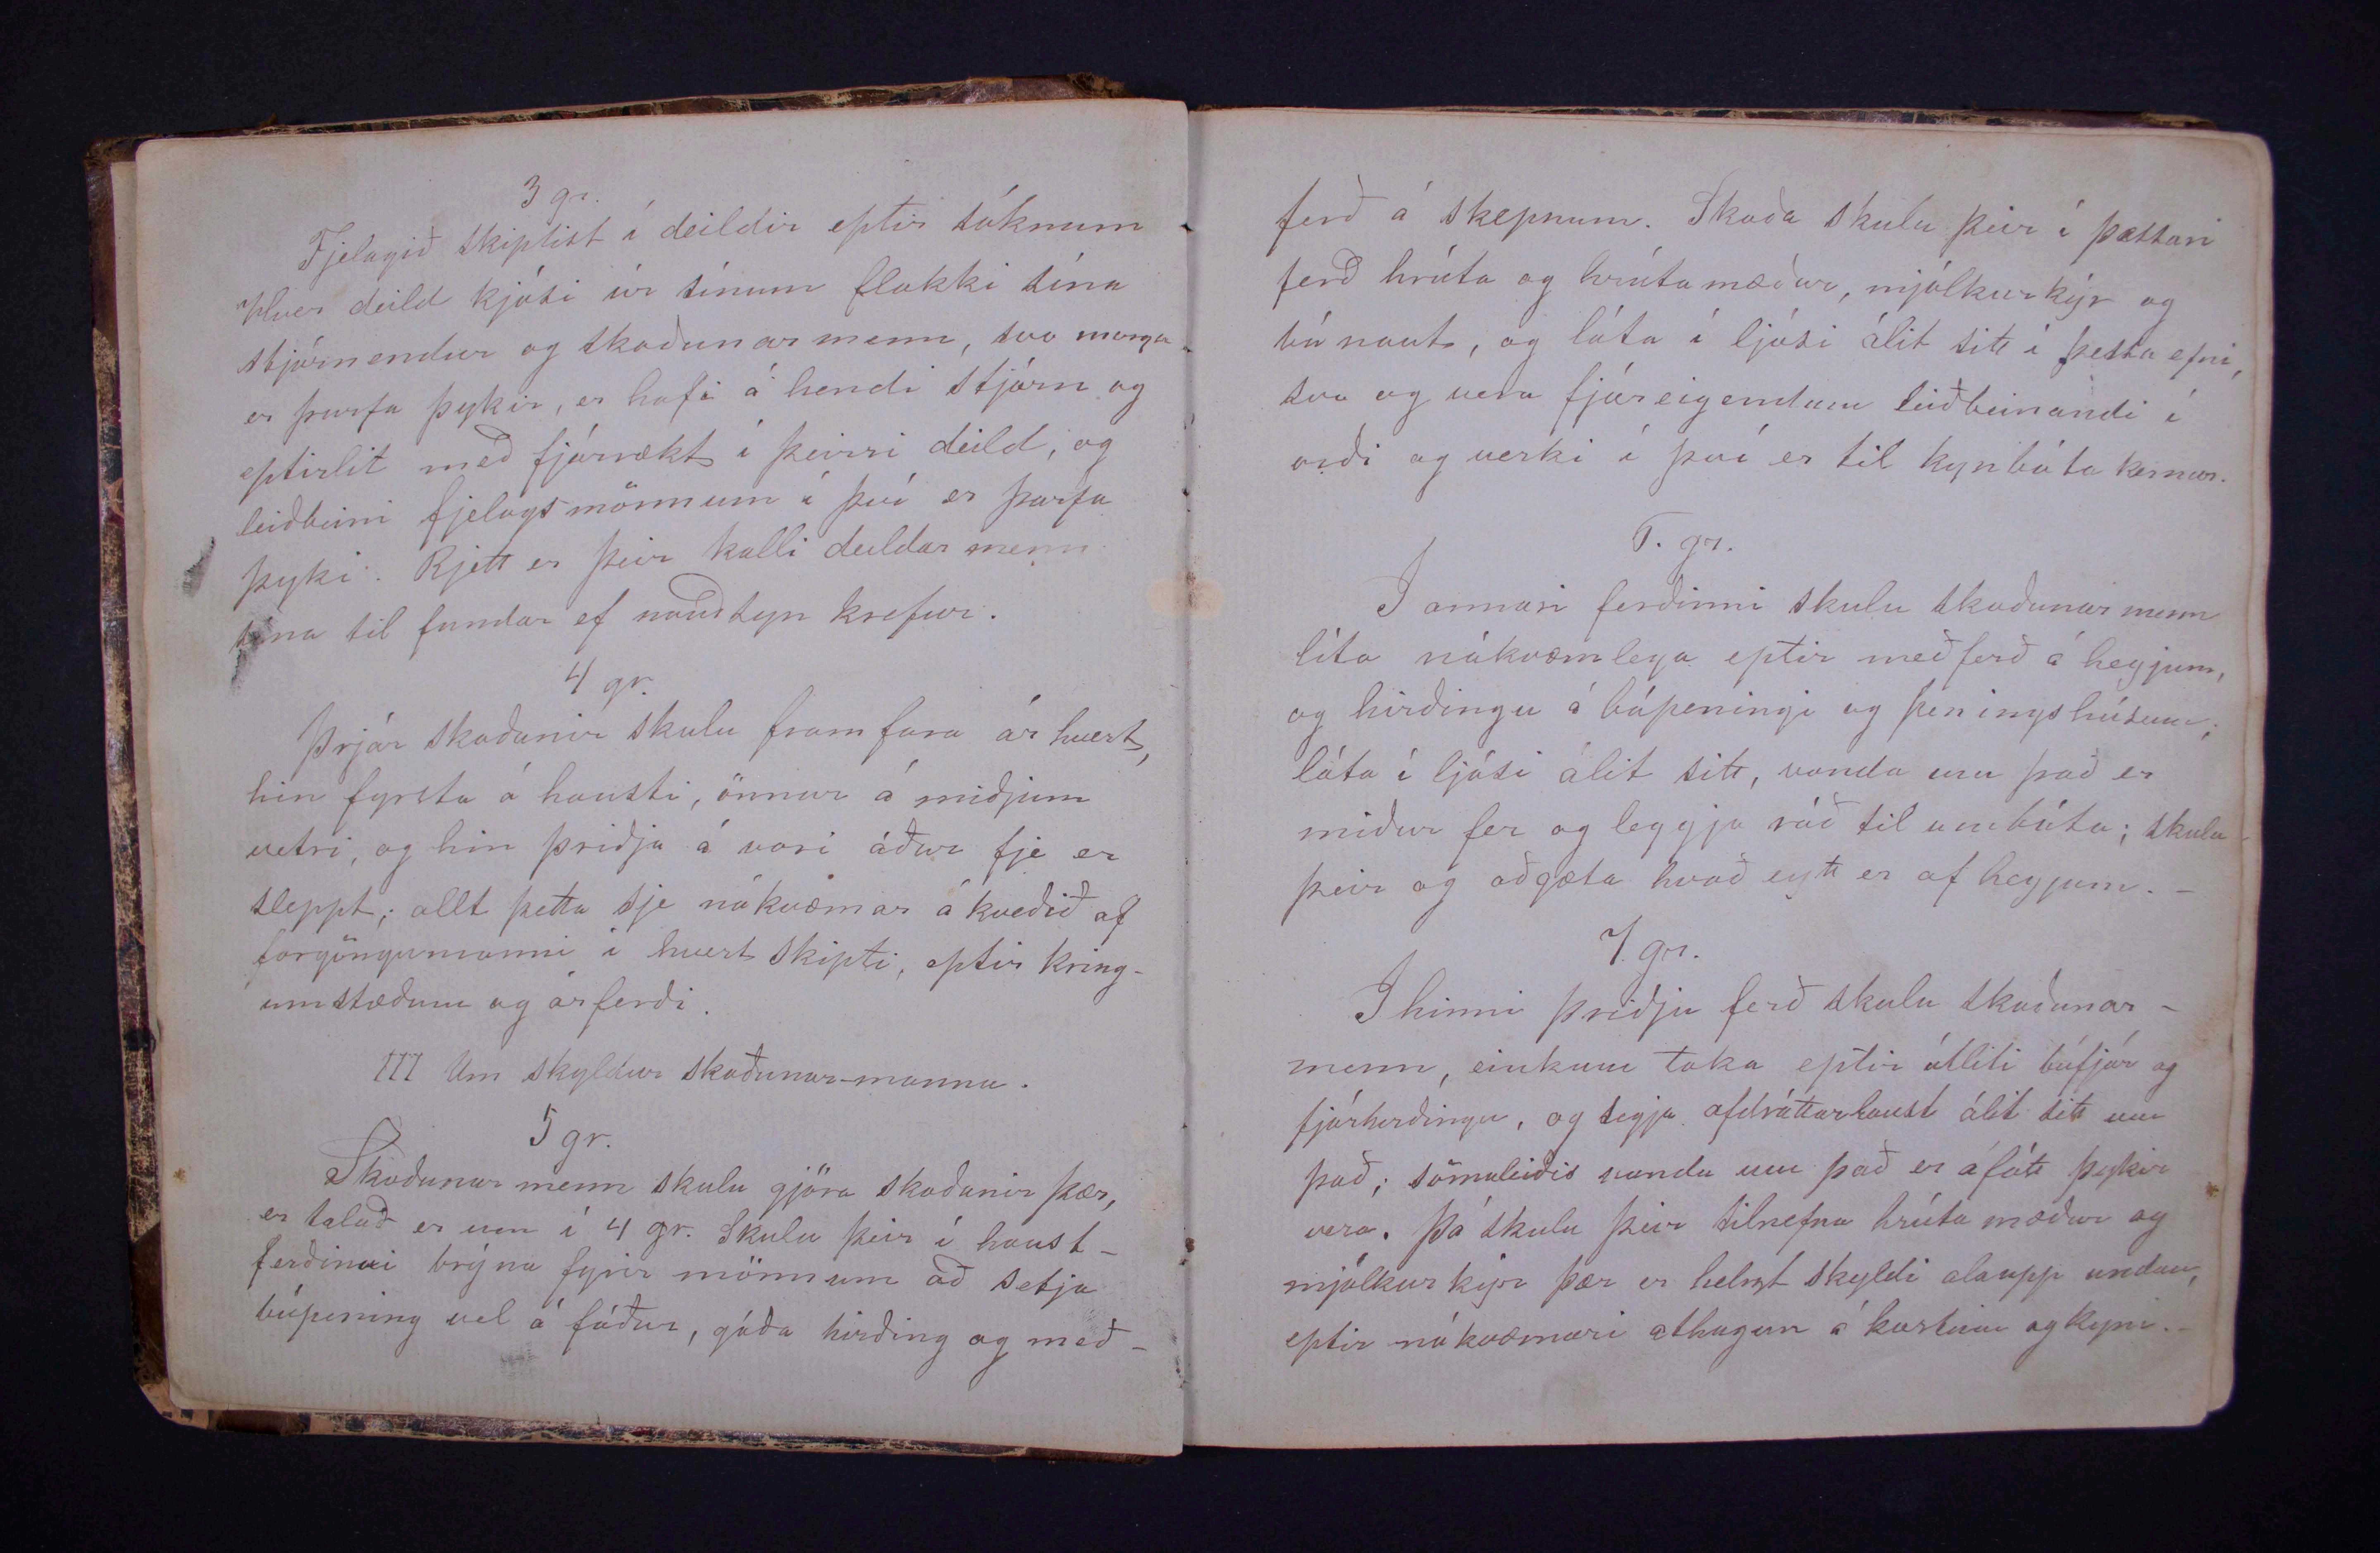 3 gr.
Fjelagið skiptist í deildir eptir sóknum
Hver deild kjósi úr sínum flokki sína
stjórnendur og skoðunarmenn, svo marga
er þurfa þykir, er hafi á hendi stjórn og
eptirlit með fjárrækt í þeirri deild, og
leiðbeini fjelagsmönnum í því er þurfa
þyki. Rjett er þeir kalli deildarmenn
sína til fundar ef nauðsyn krefur.
4 gr.
Þrjár skoðanir skulu framfara ár hvert,
hin fyrsta á hausti, önnur á miðjum
vetri, og hin þriðja á vori áður fje er
sleppt; allt þetta sje nákvæmar ákveðið af
forgöngumanni í hvert skipti, eptir kring-
umstæðum og árferði.
III Um skyldur skoðunar-manna.
5 gr.
Skoðunarmenn skulu gjöra skoðanir þær,
er talað er um í 4 gr. Skulu þeir í haust-
ferðinni brýna fyrir mönnum að setja
búpening vel á fóður, góða hirðing og með-
ferð á skepnum. Skoða skulu þeir í þessari
ferð hrúta og hrútamæður, mjólkurkýr og
bú naut, og láta í ljósi álit sitt í þessa efni,
svo og vera fjáreigendum leiðbeinandi í
orði og verki í því er til kynbóta kemur.
6. gr.
I annari ferðinni skulu skoðunarmenn
líta nákvæmlega eptir meðferð á heyjum,
og hirðingu á búpeningi og peningshúsum;
láta í ljósi álit sitt, vanda um það er
miður fer og leggja ráð til umbóta; skulu
þeir og aðgæta hvað eytt er af heyjum. -
7. gr.
I hinni þriðju ferð skulu skoðunar-
menn, einkum taka eptir útliti búfjár og
fjárhirðingu, og segja afdráttarlaust álit sitt um
það; sömuleiðis vanda um það er áfátt þykir
vera. Þá skulu þeir tilnefna hrúta mæður og
mjólkurkýr þær er helzt skyldi ala upp undan,
eptir nákvæmari athugun á kostum og kyni. -